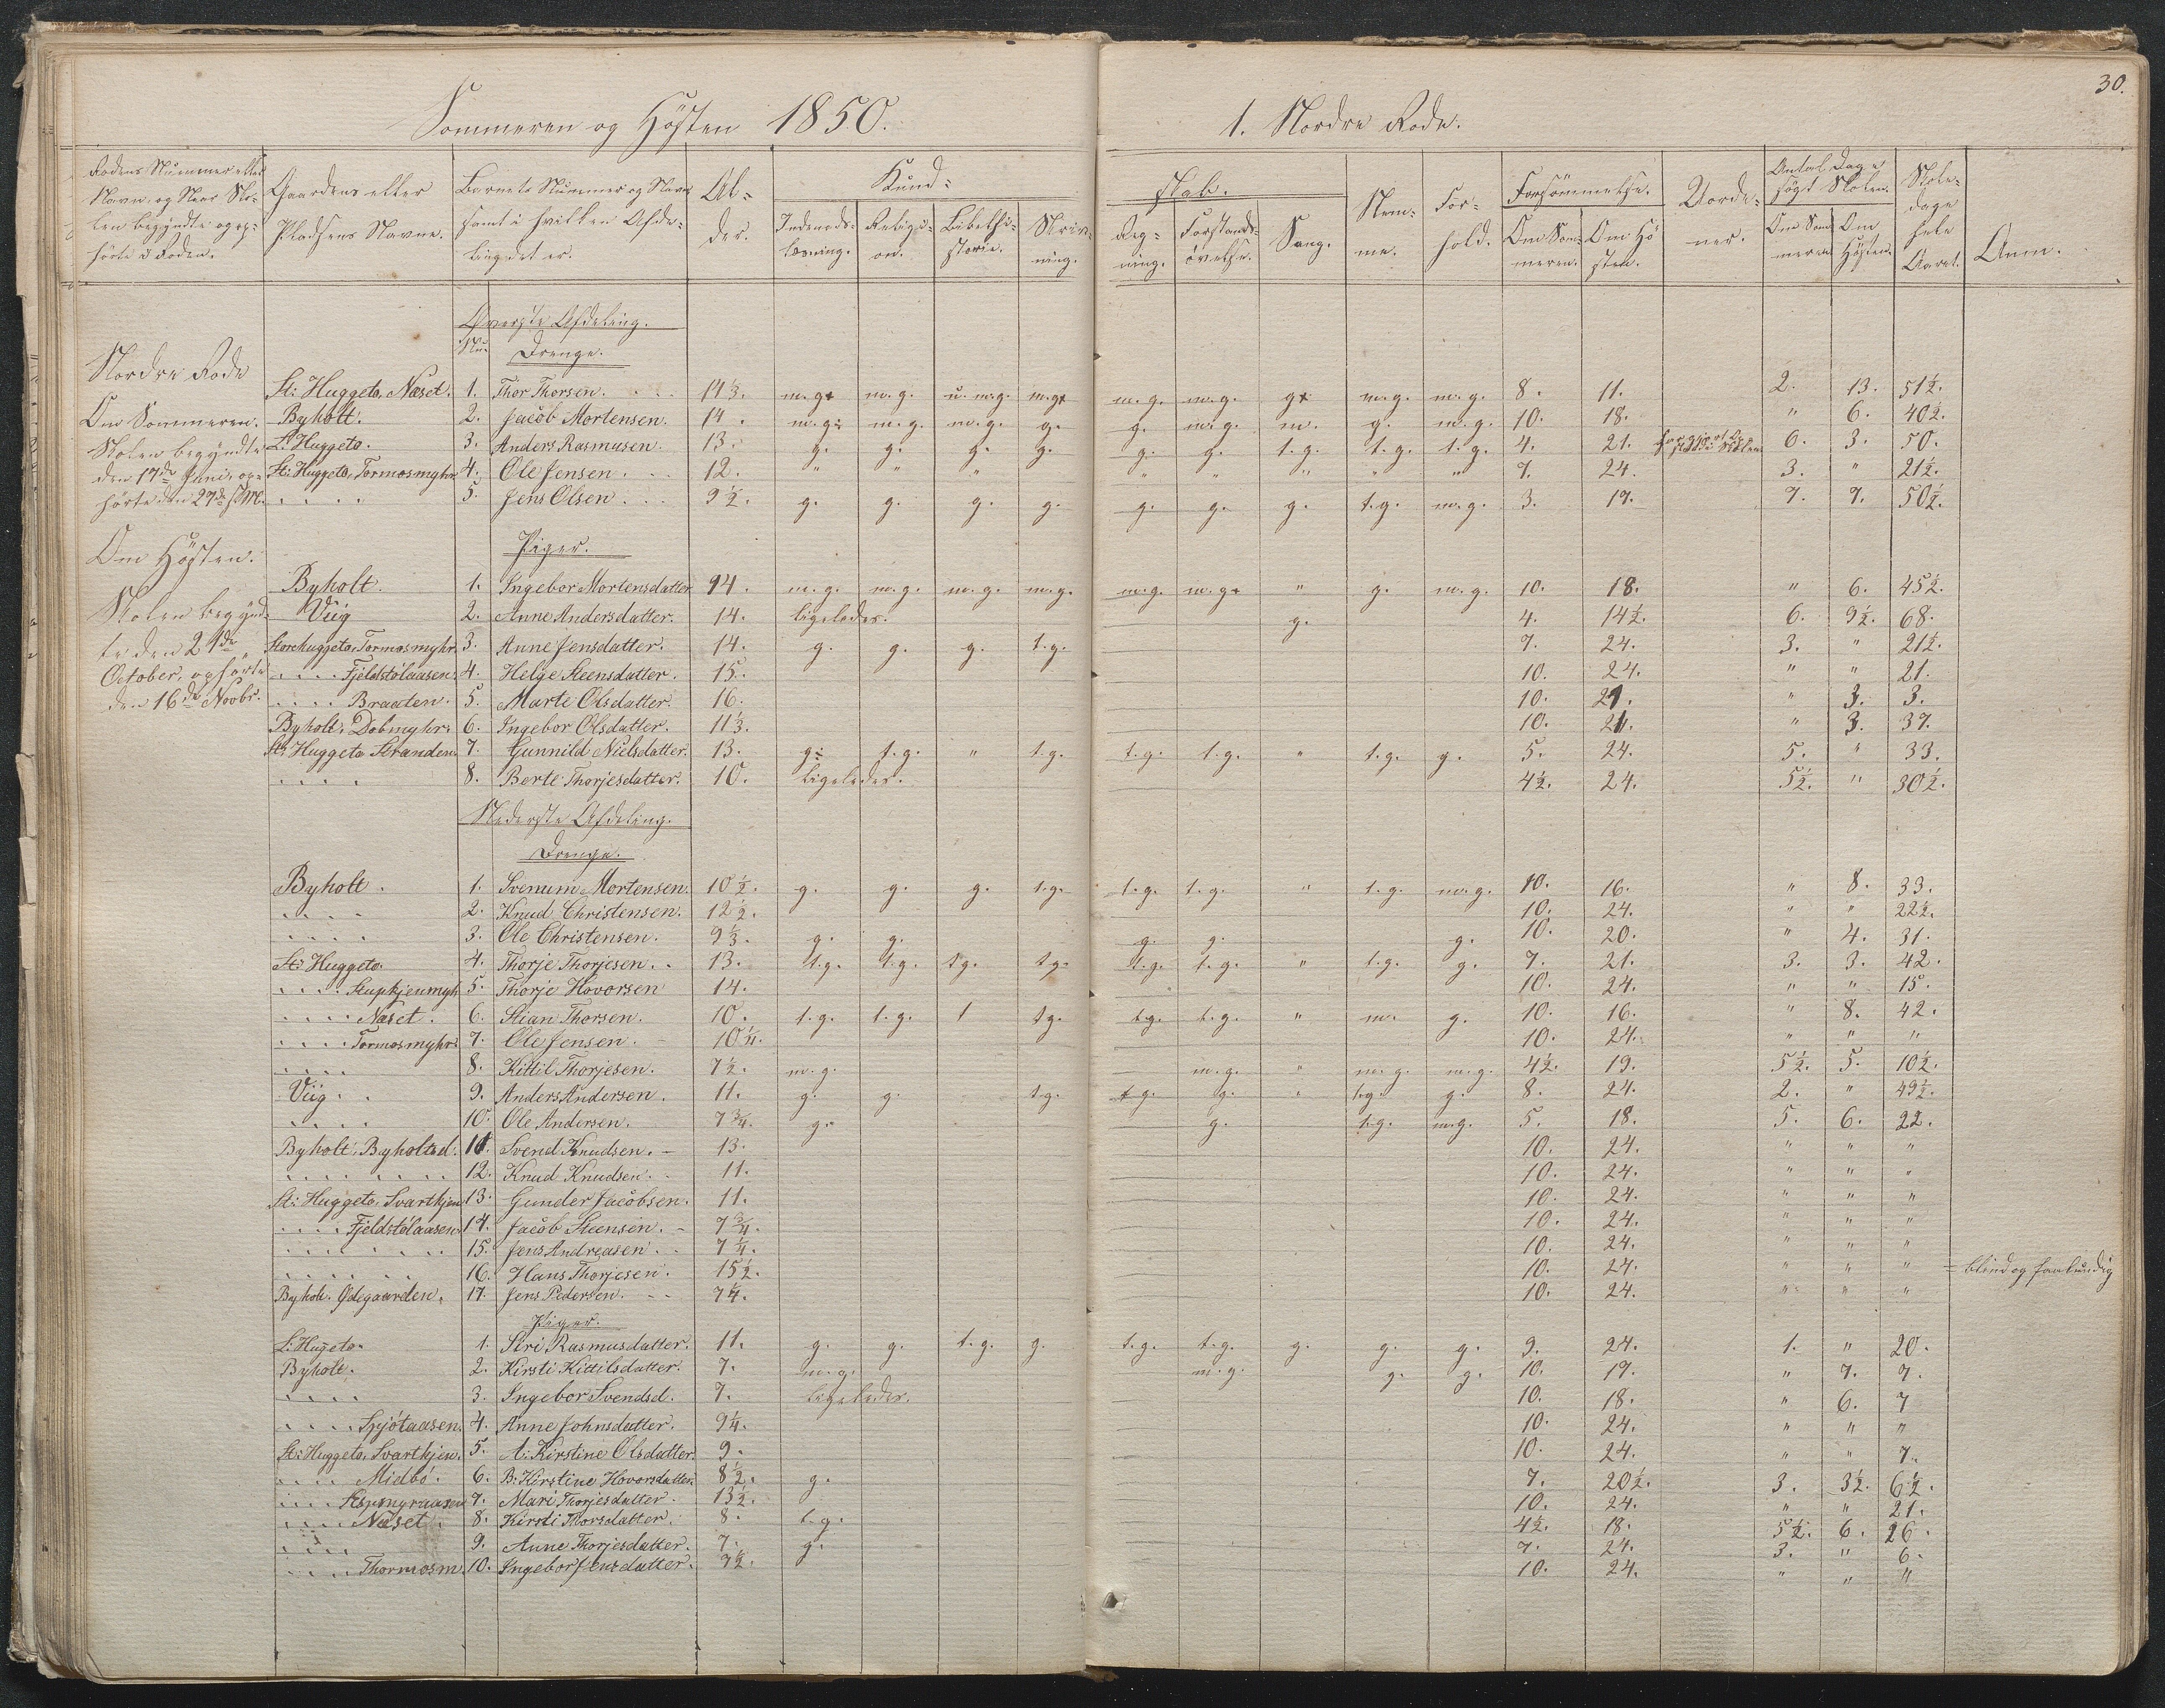 30.
Sommeren og Høsten 1850.
1. Nordre Rode.
Rodens Nummer eller Navn, og Naar Skolen begyndte og ophørte i Roden.
Gaardens eller Pladsens Navne.
Barnets Nummer og Navn samt i hvilken Afdeling det er.
Alder.
Kundskab.
Indenadslæsning. Religion. Bibelhistorie. Skrivning. Regning. Forstandsøvelse. Sang.
Nemme. Forhold.
Forsømmelse. Om Sommeren. Om Høsten.
Antal Dage søgt Skolen. Om Sommeren. Om Høsten.
Skoledage hele Aaret.
Anm.
Nordre Rode
Om Sommeren.
Skolen begyndte
den 17de Juni, op-
hørte den 27de s. M.
Om Høsten.
Skolen begynd-
te den 21de
October, ophørte
den 16de Novbr.
Øverste Afdeling.
Nu. Drenge.
St: Huggeto, Næset. 1. Thor Thorsen. 14⅓. m.g. m.g. u. m.g. m.g. m.g. m.g. g. m.g. m.g. 8. 11. 2. 13. 51½.
Byholt. 2. Jacob Mortensen. 14. m.g. m.g. m.g. g. g. m.g. m. g. m.g. 10. 18. " 6. 40½.
L: Huggeto. 3. Anders Rasmusen. 13. g. g. g. g. g. g. t.g. t.g. t.g. 4. 21. 6. 3. 50.
St: Huggeto, Tormosmyhr. 4. Ole Jensen. 12. " " " " " " " " 7. 24. 3. " 21½.
. . . . 5. Jens Olsen. 9½. g. g. g. g. g. g. g. t.g. m.g. 3. 17. 7. 7. 50½.
Piger.
Byholt. 1. Ingebor Mortensdatter 14. m.g. m.g. m.g. m.g. m.g. m.g. " g. m.g. 10. 18. " 6. 45½.
Viig 2. Anne Andersdatter. 14. ligeledes. g. 4. 14½. 6. 9½. 68.
Storehuggeto, Tormosmyhr. 3. Anne Jensdatter. 14. g. g. g. t.g. 7. 24. 3. " 21½.
. . . . Fjeldstølaasen. 4. Helge Steensdatter. 15. 10. 24. " " 21.
. . . . Braaten. 5. Marte Olsdatter. 16. 10. 21. " 3. 3.
Byholt, Dobmyhr: 6. Ingebor Olsdatter. 11⅓. 10. 21. " 3. 37.
St: Huggeto Stranden. 7. Gunnild Nielsdatter. 13. g: t.g. " t.g. t.g. t.g. " t.g. g. 5. 24. 5. " 33.
. . . . 8. Berte Thorjesdatter. 10. ligeledes. 4½. 24. 5½. " 30½.
Nederste Afdeling.
Drenge.
Byholt. 1. Svenum Mortensen. 10½. g. g. g. t.g. t.g. t.g. " t.g. m.g. 10. 16. " 8. 33.
. . . . 2. Knud Christensen. 12½. 10. 24. " " 22½.
. . . . 3. Ole Christensen. 9⅓. g. g. g. g. g. 10. 20. " 4. 31.
St: Huggeto. 4. Thorje Thorjesen. 13. t.g. t.g. t.g. t.g. t.g. t.g. " t.g. g. 7. 21. 3. 3. 42.
. . . . 5. Thorje Hovorsen 14. 10. 24. " " 15.
. . . . Næset. 6. Stian Thorsen. 10. t.g. t.g. t t.g. t.g. t.g. " m. g. 10. 16. " 8. 42.
. . . . Tormosmyhr: 7. Ole Jensen. 10¼. 10. 24. " " "
. . . . 8. Kittil Thorjesen. 7½. m.g. m.g. " m.g. m.g. 4½. 19. 5½. 5. 10½.
Viig. 9. Anders Andersen. 11. g. g. t.g. t.g. g. " t.g. g. 8. 24. 2. " 49½.
. . . . 10. Ole Andersen. 7¾. g. g. t.g. m.g. 5. 18. 5. 6. 22.
Byholt, Byholtsd. 11. Svend Knudsen. 13. 10. 24. " " "
. . . . . . . 12. Knud Knudsen. 11. 10. 24. " " "
St: Huggeto, Svartkjen 13. Gunder Jacobsen. 11. 10. 24. " " "
. . . . Fjeldstølaasen. 14. Jacob Steensen. 7¾. 10. 24. " " "
. . . . . . . 15. Jens Andreasen. 7¼. 10. 24. " " "
. . . . . . 16. Hans Thorjesen. 15½. 10. 24. " " " = blind og
Byholt. Ødegaarden. 17. Jens Pedersen. 7¼. 10. 24. " " "
Piger.
L: Hugeto. 1. Siri Rasmusdatter. 11. g. g. t.g. g. t.g. t.g. g. g. g. 9. 24. 1. " 20.
Byholt. 2. Kirsti Kittilsdatter. 7. m.g. m.g. g. g. 10. 17. " 7. 7.
. . . . 3. Ingebor Svendsd. 7. ligeledes. 10. 18. " 6. 7
. . . . Spjøtaasen. 4. Anne Johnsdatter. 9¼. 10. 24. " " "
St: Huggeto, Svartkjen. 5. A: Kirstine Olsdatter. 9. 10. 24. " " 7.
. . . . Midbö. 6. B: Kirstine Hovorsdatter. 8½. g. 7. 20½. 3. 3½. 6½.
. . . . 7. Mari Thorjesdatter. 13½. 10. 24. " " 21.
. . . . Næset. 8. Kirsti Thorsdatter. 8. t.g. 4½. 18. 5½. 6. 26.
. . . . 9. Anne Thorjesdatter. 7. g. 7. 24. 3. " 6.
. . . . Thormosm. 10. Ingebor Jensdatter. 9½. 10. 24. " " "